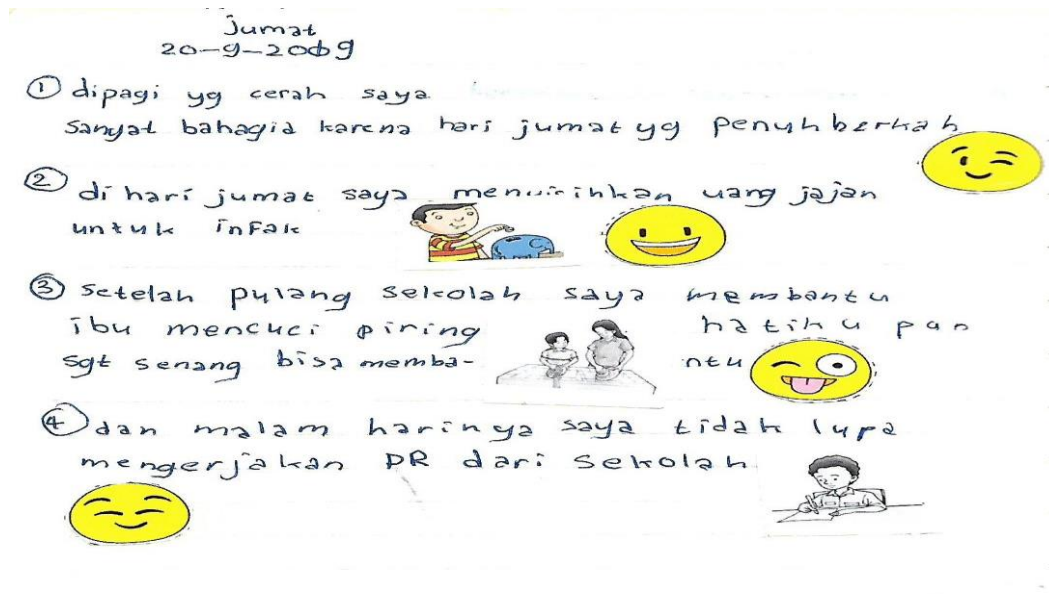 Jumat
20-9-2019
① dipagi yg cerah saya
Sangat bahagia karena hari jumat yg penuh berkah
② di hari jumat saya menyisihkan uang jajan
untuk infak
③ Setelah pulang sekolah saya membantu
ibu mencuci piring hatiku pun
sgt senang bisa memba- ntu
④ dan malam harinya saya tidak lupa
mengerjakan PR dari Sekolah